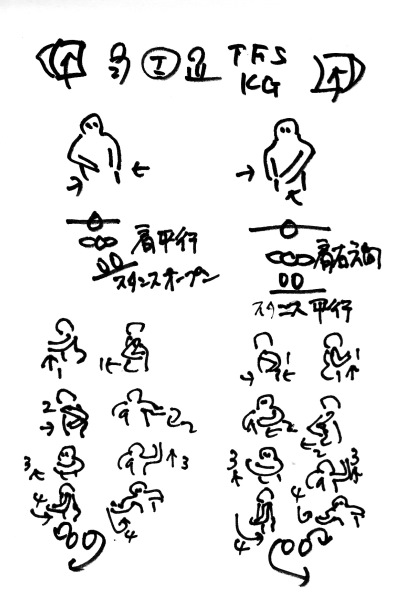 I TFS
KG
肩平行
スタンスオープン
肩右方向
スタンス平行
1 1 1 1
2 2 2 2
3 3 3 3
4 4 4 4